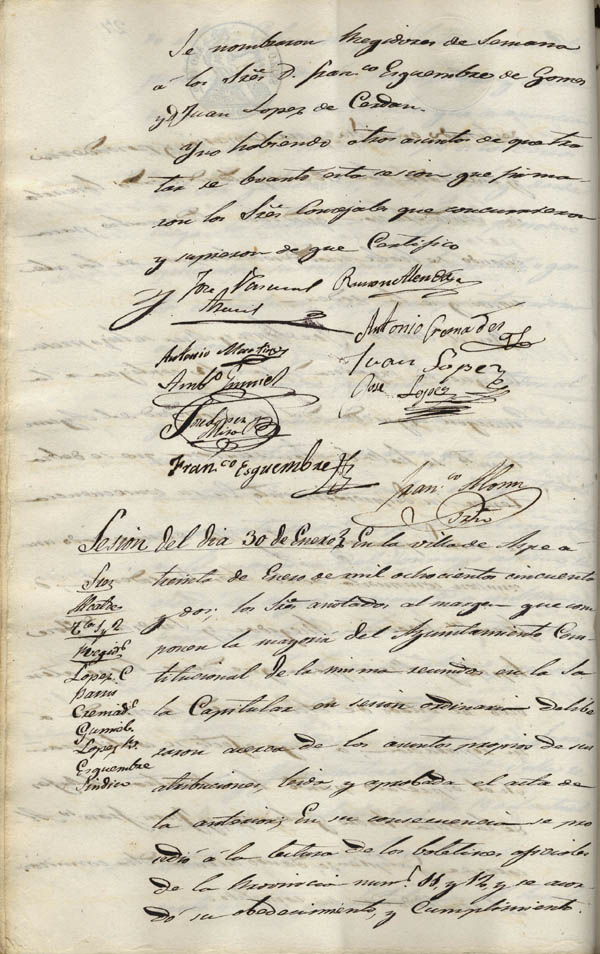 Se nombraron Regidores de Semana
á los Sres D. Fran.co Esquembre de Gomes
y D Juan Lopez de Cerdan.
Y no habiendo otros asuntos de que tra
tar se levantó esta sesion que firma-
ron los Sres Concejales que concurrieron
y supieron de que Certifico
Jose Pascual
Ramon Alenda
Antonio Cremades
Antonio Martinez
Juan Lopez
Amb.o Gumiel
Jose Lopez
Jose Lopez
Miro
Fran.co Esquembre
Fran.co
Srio
Sesion del dia 30 de Enero En la villa de Aspe á
treinta de Enero de mil ochocientos cincuenta
y dos; los Sres anotados al margen que com
ponen la mayoria del Ayuntamiento Cons
titucional de la misma reunidos en la Sa
la Capitular en sesion ordinaria delibe
raron acerca de los asuntos propios de sus
atribuciones, leida, y aprobada el acta de
la anterior; En su consecuencia se pro
cedió á la lectura de los boletines oficiales
de la Provincia num.s 11 y 12 y se acor
dó su obedecimiento, y Cumplimiento.
Sres
Alcalde
Ttes 1 y 2
Regid.s
Lopez C
Parris
Cremad.s
Gumiel
Lopez
Esquembre
Sindico